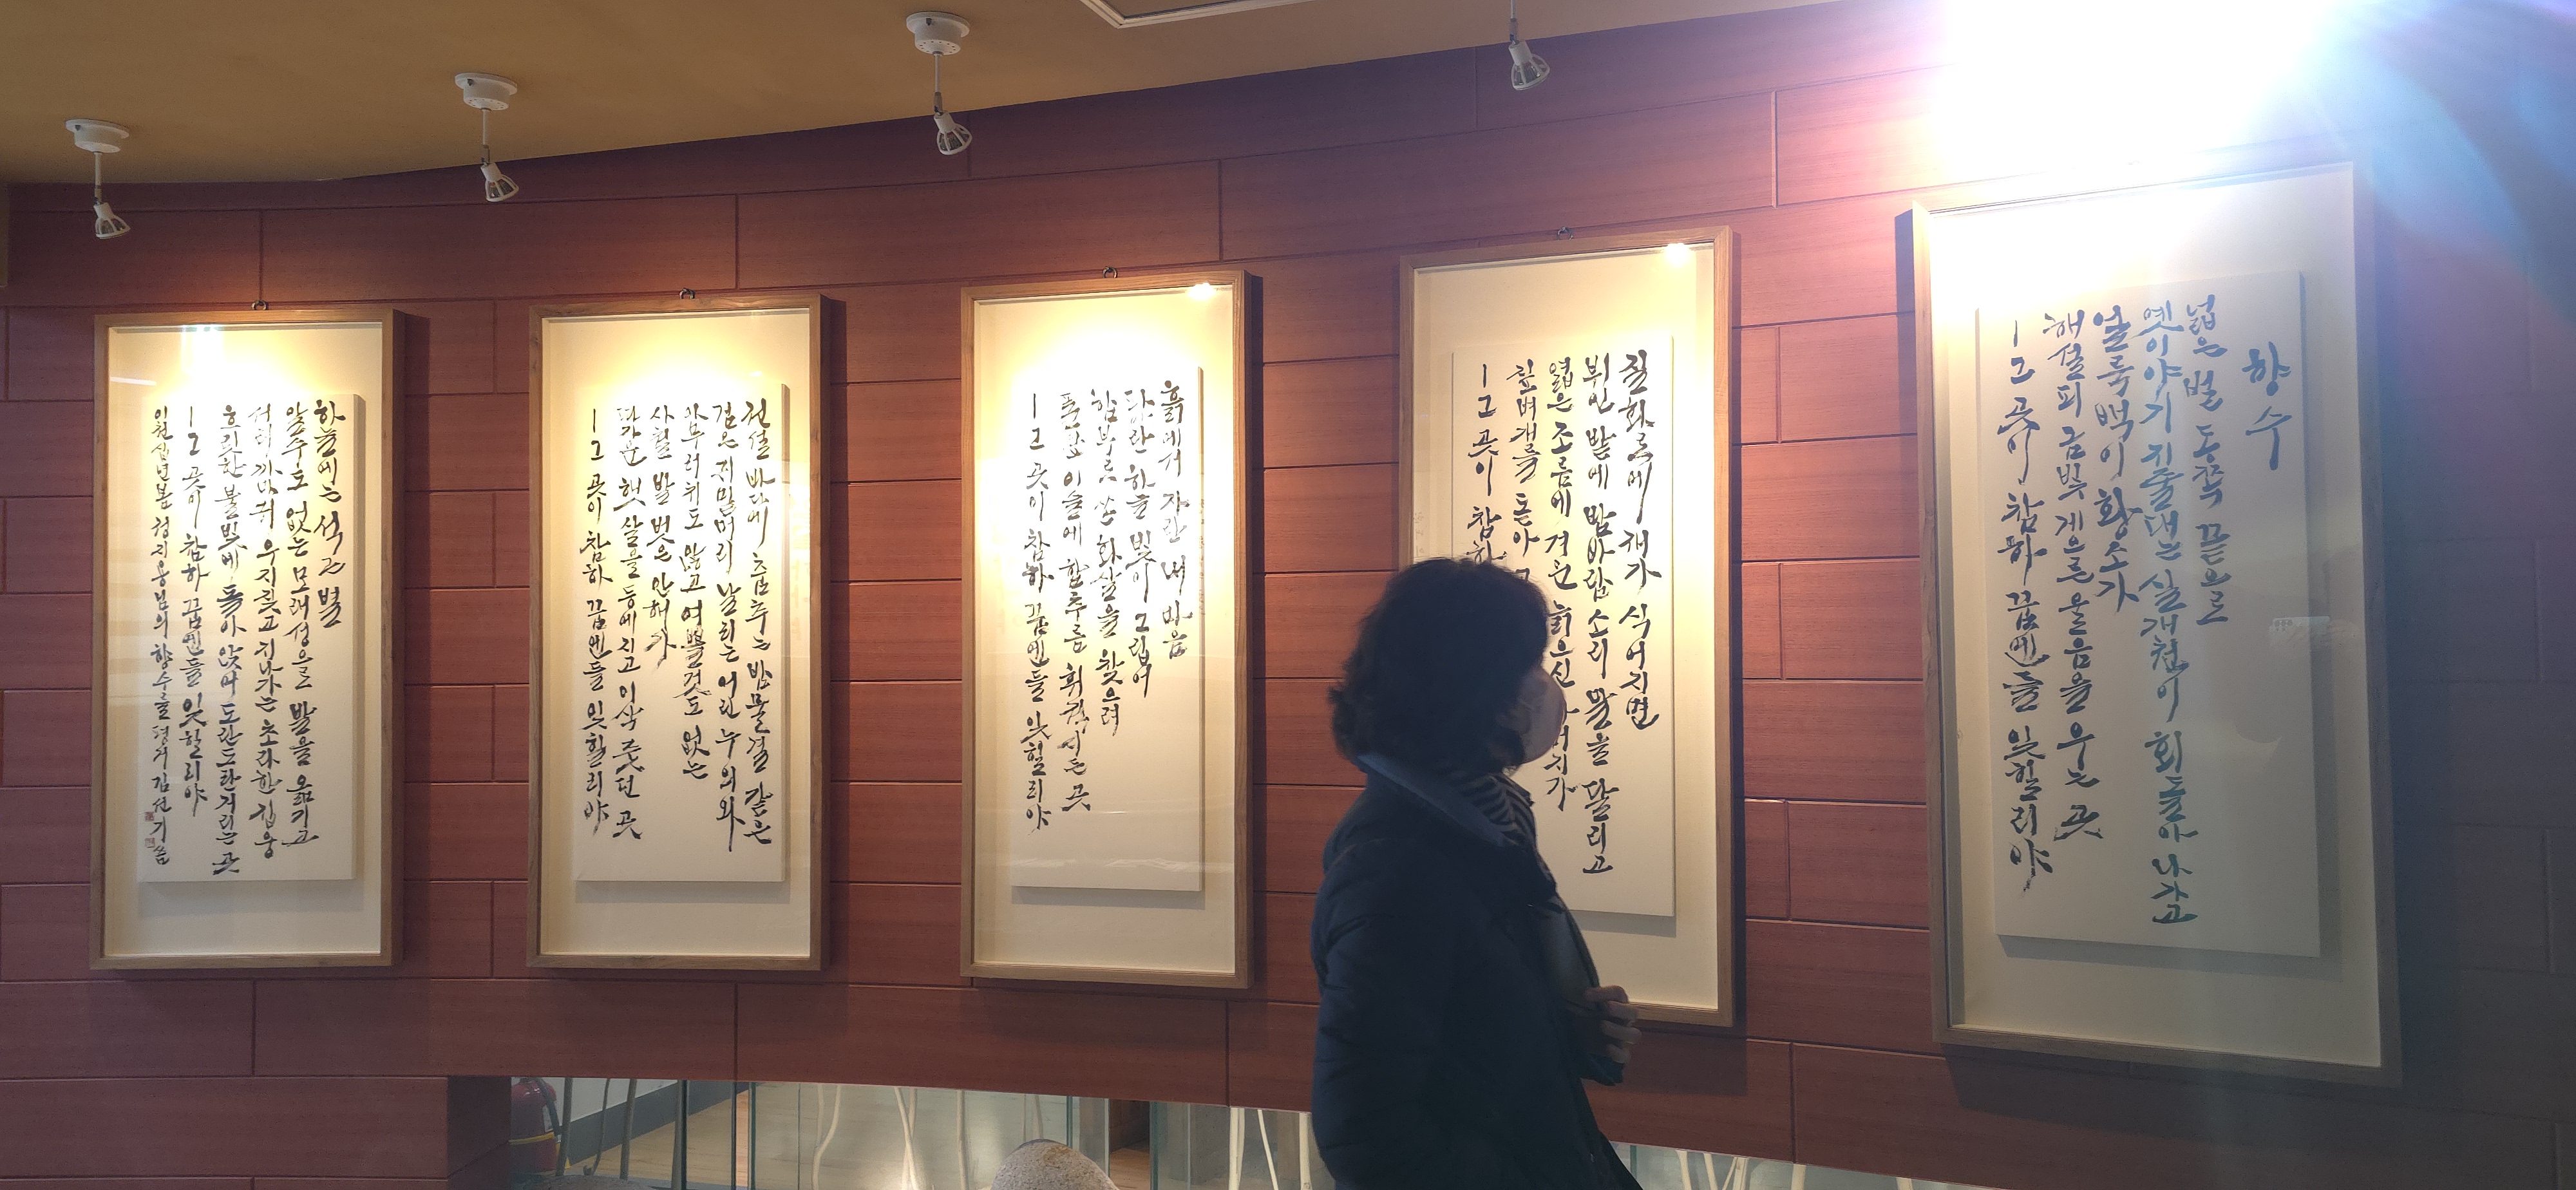 향수
넓은 벌 동쪽 끝으로
옛이야기 지줄대는 실개천이 회돌아 나가고
얼룩백이 황소가
해설피 금빛 게으른 울음을 우는 곳
ㅣ그 곳이 참하 꿈엔들 잊힐리야
질화로에 재가 식어지면
뷔인 밭에 밤바람 소리 말을 달리고
엷은 조름에 겨운 늙으신 버지가
짚벼개를 돋아 고
ㅣ그 곳이 참하
흙에서 자란 내 마음
파란 하늘 빛이 그립어
함부로 쏜 화살을 찾으려
풀섶 이슬에 함추름 휘적시든 곳
ㅣ그 곳이 참하 꿈엔들 잊힐리야
전설 바다에 춤추는 밤물결 같은
검은 귀밑머리 날리는 어린 누의와
아무러치도 않고 여쁠것도 없는
사철 발 벗은 안해가
따가운 햇살을 등에지고 이삭 줏던 곳
ㅣ그 곳이 참하 꿈엔들 잊힐리야
하늘에는 석근 별
알수도 없는 모래성으로 발을 옮기고
서리 까마귀 우지짖고 지나가는 초라한 집웅
흐릿한 불빛에 돌아 앉어 도란도란거리는 곳
ㅣ그 곳이 참하 꿈엔들 잊힐리야
이천십년봄 정지용님의 향수를 평거 김선기 씀